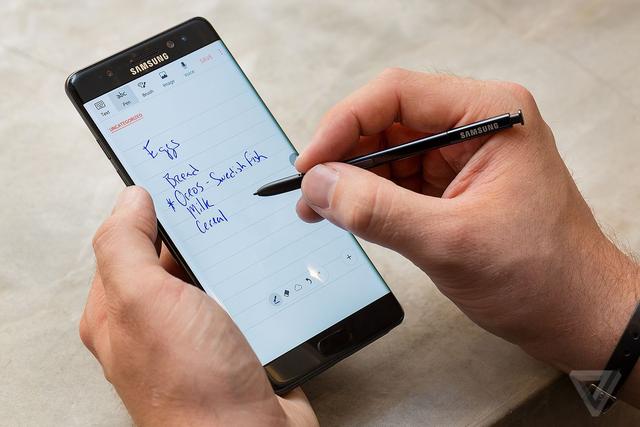 SAMSUNG
SAVE
Text
abc
Pen
Brush
Image
Voice
UNCATEGORIZED
Eggs
Bread
* Oreos - Swedish fish
Milk
Cereal
SAMSUNG